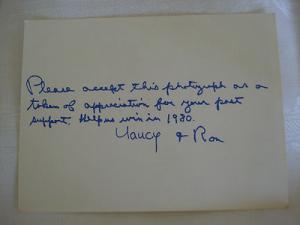 Please accept this photograph as a
token of appreciation for your past
support. Help us win in 1980.
Nancy & Ron